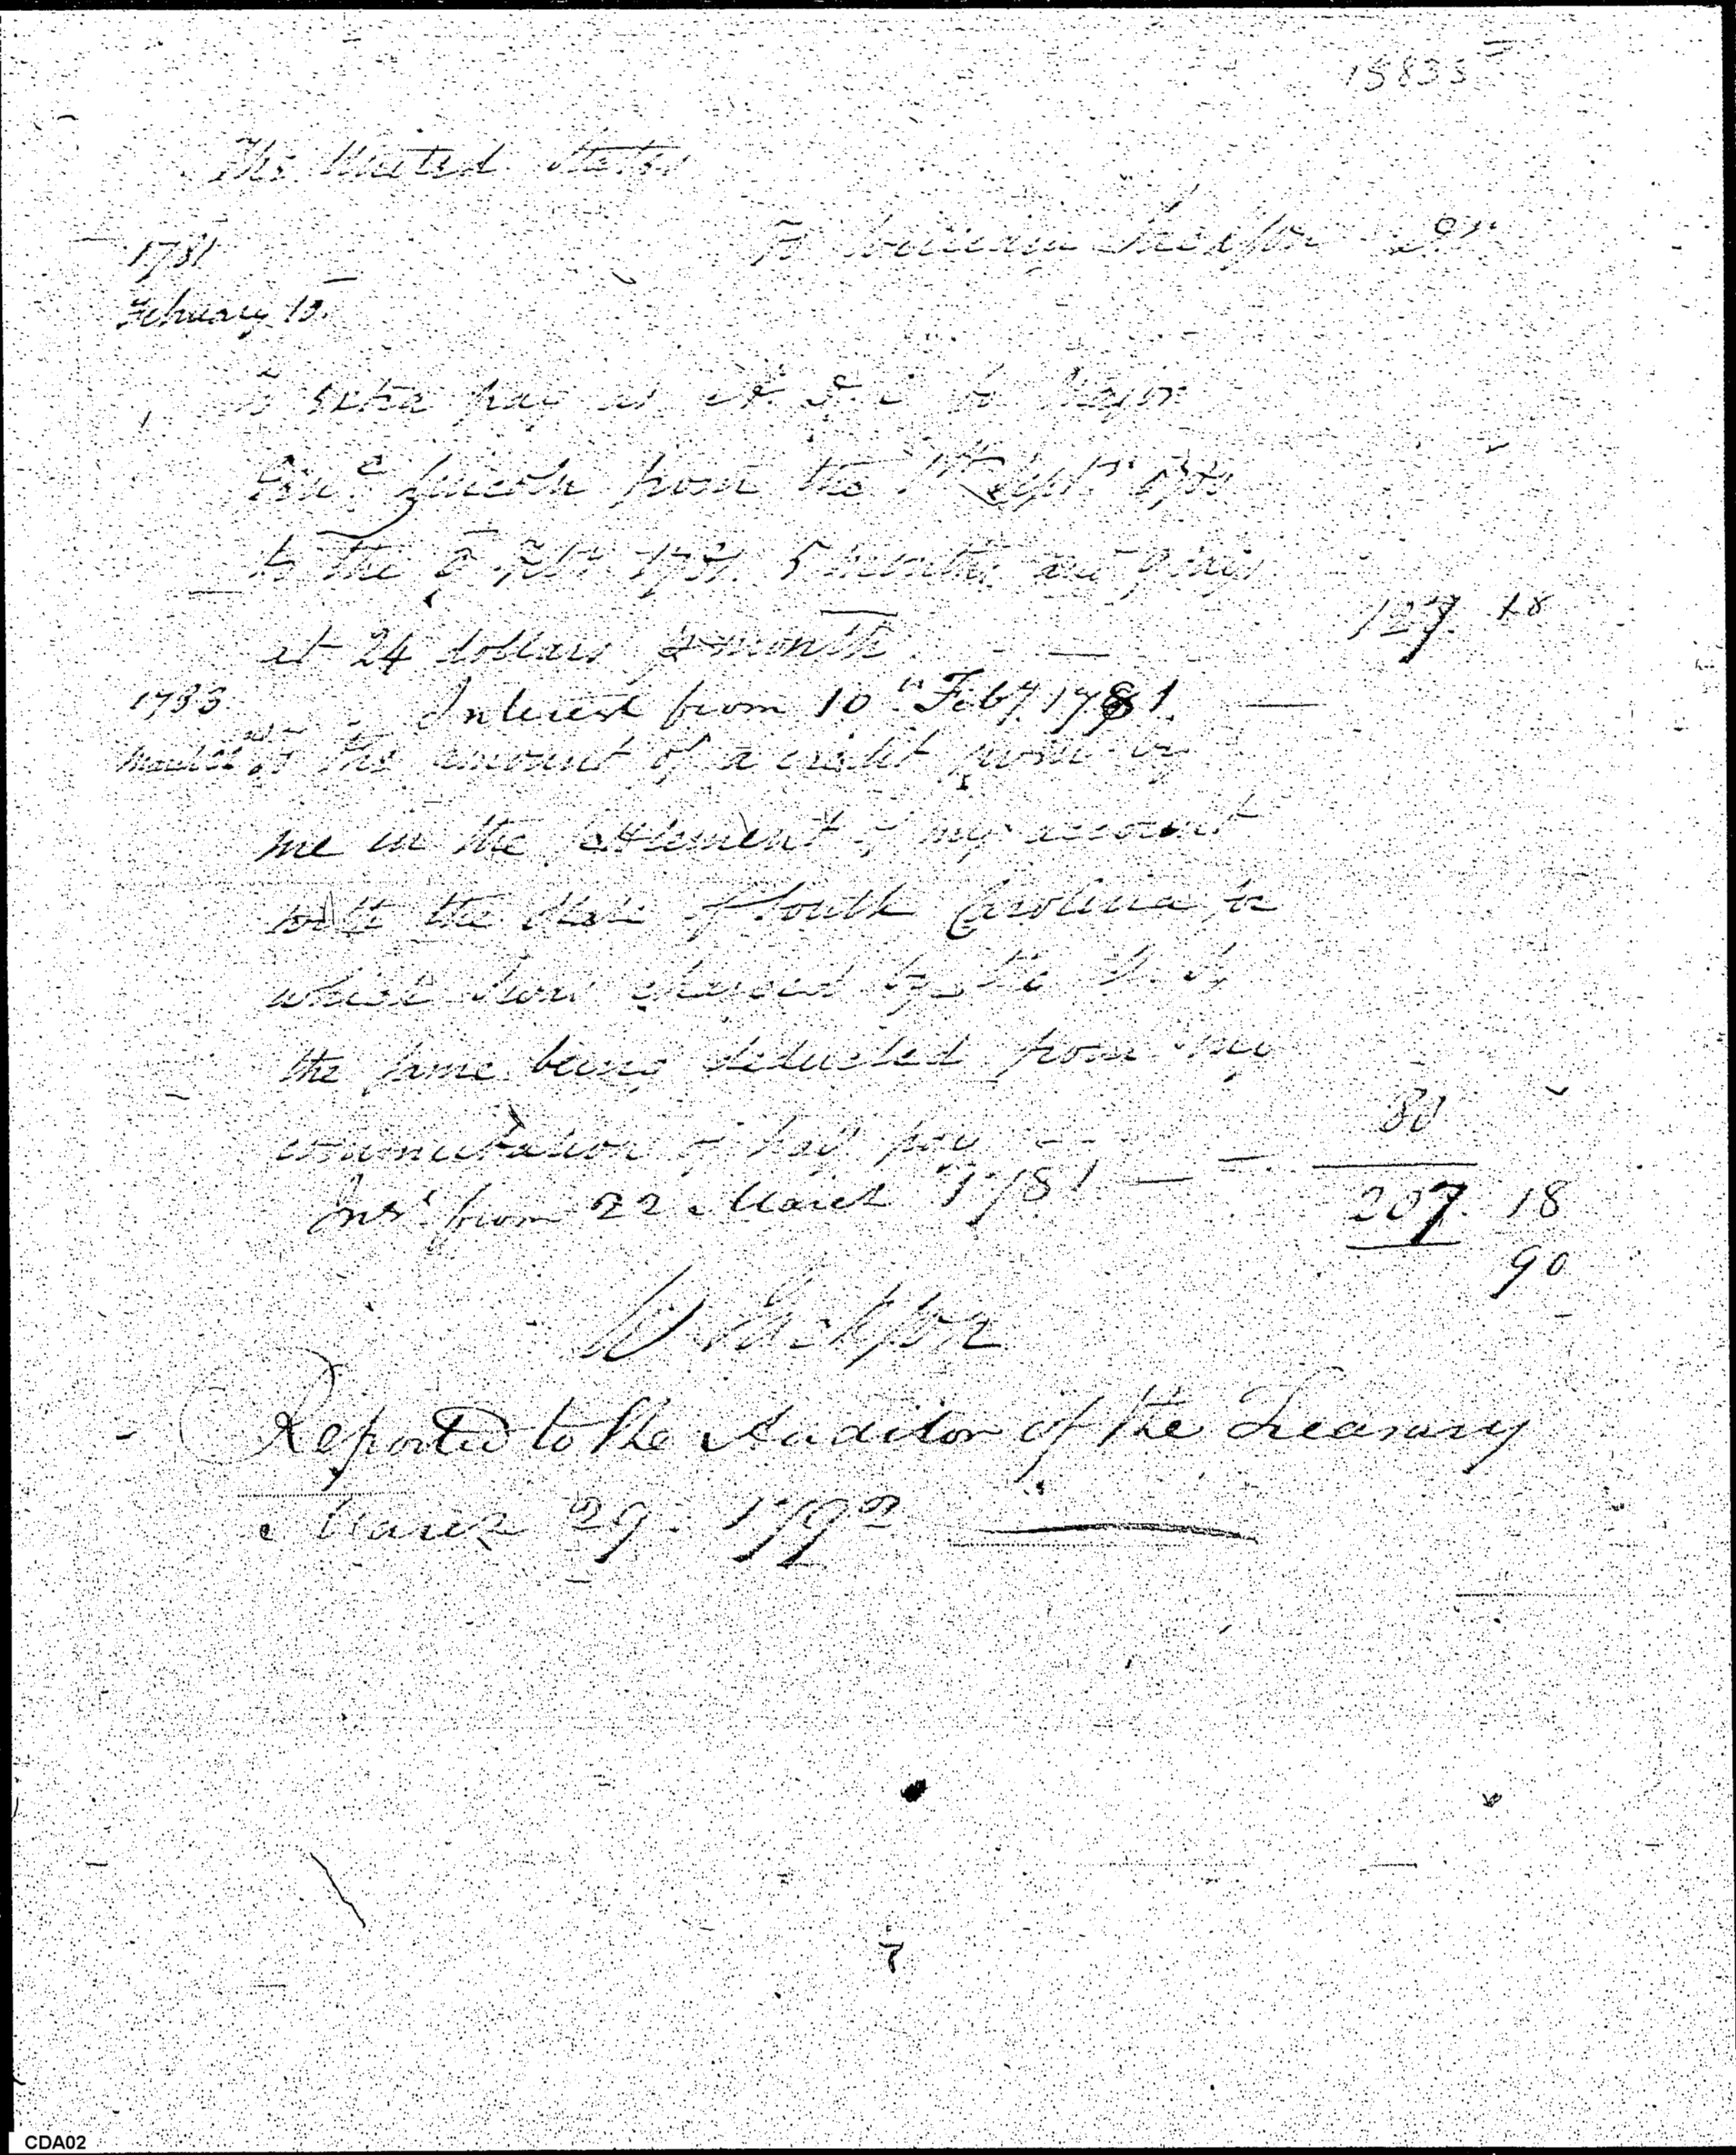 15835
The United States
1781
To William Jackson Dr
February 10.
To extra pay as A. D. C. to Major
Genl. Lincoln from the 1st Sept. 1780
to the 9 Feby 1781. 5 months and 9 days
at 24 dollars p month 127. 18
1783 Interest from 10th Feby. 1781.
March 22 To the amount of a credit given by
me in the settlement of my account
with the State of South Carolina
which
the same being deducted from my
commutation of half pay 80
Inst. from 22 March 1781 207. 18
90
W Jackson
Reported to the Auditor of the Treasury
March 29. 1792
7
CDA02